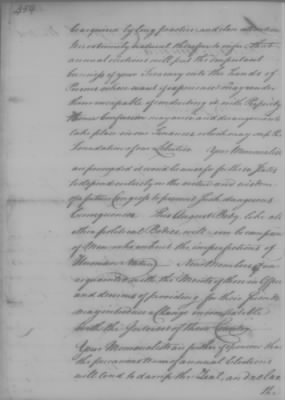 454
be acquired by long practice and close attention
it is extremely natural therefore to infer that
annual elections will put the important
business of your Treasury into the hands of
Persons whose want of experience may render
them incapable of conducting it with Propriety
Hence Confusion may arise and derangements
take place in our Finances which may sap the
Foundation of our Liberties Your Memorialists
are persuaded it would be unsafe for these States
to depend entirely on the virtue and wisdom
of a future Congress to prevent such dangerous
Consequences This August Body like all
other political Bodies will ever be composed
of Men who inherit the imperfections of
Human Nature New Members un
acquainted with the Merits of those in Office
and desirous of providing for their friends
may introduce a Change incompatible
with the Interest of their Country
Your Memorialists are further of opinion that
the precariousness of annual Elections
will tend to damp the Zeal, and relax
the